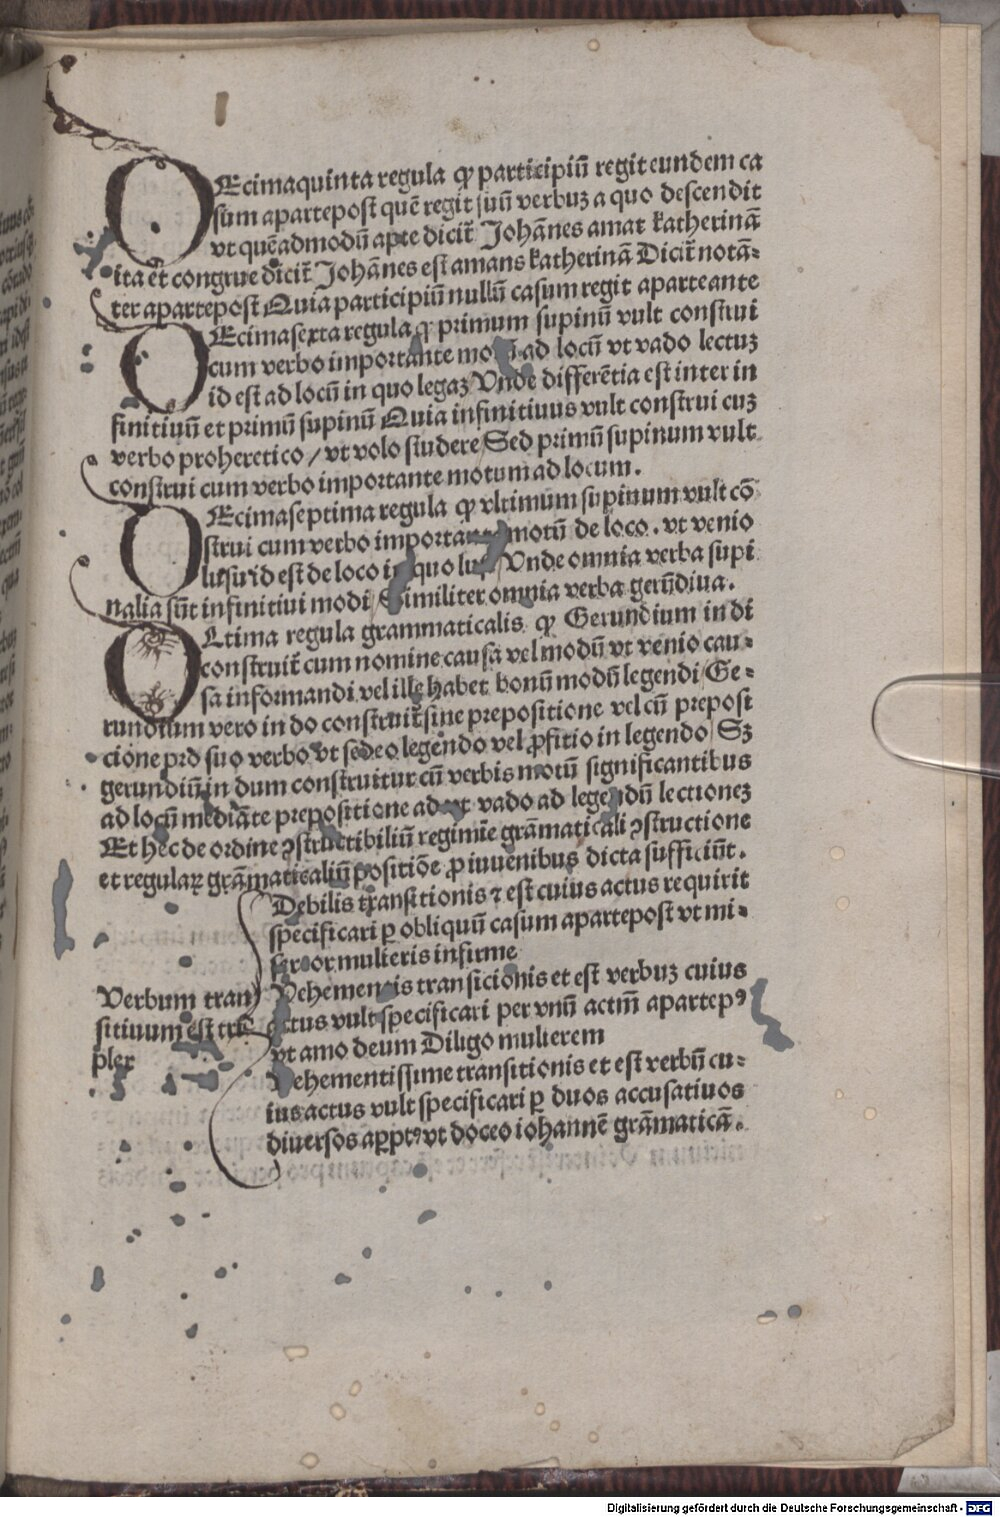 DEcimaquinta regula ꝙ participiū regit eundem ca
sum apartepost quē regit suū verbuꝫ a quo descendit
vt quēadmodū apte dicit᷑ Johānes amat katherinā
ita et congrue dicit᷑ Johānes est amans katherinā Dicit᷑ notā-
ter apartepost Quia participiū nullū casum regit aparteante
DEcimasexta regula ꝙ primum supinū vult construi
cum verbo importante ad locū vt vado lectuꝫ
id est ad locū in quo legaꝫ Vnde differētia est inter in
finitiuū et primū supinū Quia infinitiuus vult construi cuꝫ
verbo proheretico / vt volo studere Sed primū supinum vult
construi cum verbo importante motum ad locum.
DEcimaseptima regula ꝙ vltimum supinum vult cō
strui cum verbo motū de loco. vt venio
lusu id est de loco quo Vnde omnia verba supi
nalia sūt infinitiui modi Similiter omnia verba gerūdiua.
VLtima regula grammaticalis ꝙ Gerundium in di
construit᷑ cum nomine causa vel modū vt venio cau-
sa informandi vel ille habet bonū modū legendi Ge-
rundium vero in do construit᷑ sine prepositione vel cū prepost
cione prd suo verbo vt sedeo legendo vel ꝓfitio in legendo Sꝫ
gerundiū in dum construitur cū verbis motū significantibus
ad locū mediāte prepositione ad vt vado ad legendū lectioneꝫ
Et hec de ordine ꝯstructibiliū regimīe grāmaticali ꝯstructione
et regulaꝝ grāmaticaliū positiōe ꝓ iuuenibus dicta sufficiūt.
Debilis transitionis ⁊ est cuius actus requirit
specificari ꝑ obliquū casum apartepost vt mi-
sereor mulieris infirme
Verbum tran
sitiuum est tri
plex
Vehementis transicionis et est verbuꝫ cuius
actus vult specificari per vnū actm̄ apartepꝰ
vt amo deum Diligo mulierem
Vehementissime transitionis et est verbū cu-
ius actus vult specificari ꝑ duos accusatiuos
diuersos aꝑptꝰ vt doceo iohannē grāmaticā.
Digitalisierung gefördert durch die Deutsche Forschungsgemeinschaft - DFG